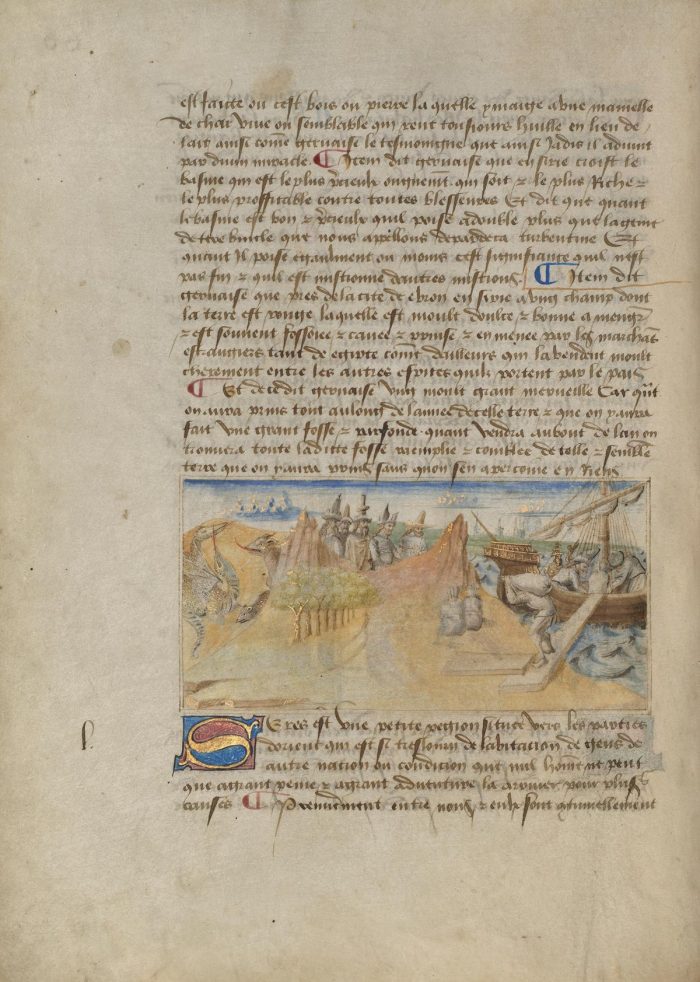 est faicte ou cest bois ou pierre la quelle ymaige a une mamelle
de char vive ou semblable qui rent tousiours huille en lieu de
lait ainsi cõme gervaise le tesmoingne que ainsi Jadis il advint
par divin miracle. ¶ Item dit gervaise que en sirie croist le
basme qui est le plus precieux ongnemẽt qui soit & le plus Riche &
le plus prouffitable contre toutes blesseures Et dit que quant
le basme est bon & precieux quil poise a double plus que largent
de que nous appellons turbentine Et
quant Il poise egaulment ou moins cest signifiance quil nest
pas fin & quil est mistionne dautres mistions. ¶ Item dit
gervaise que pres de la cite de ebron en sirie a ung champ dont
la terre est rouge laquelle est moult doulce & bonne a mengier
& est souvent fossoiee & cavee & prinse & en menee par les marchãs
estrangiers tant de egipte cõme dailleurs qui la vendent moult
chierement entre les autres espices quilz portent par le pais
¶ Et de ce dit gervaise ung moult grant merveille Car qũt
on aura prins tout au long de lannee de celle terre & que on y aura
fait une grant fosse & parfonde quant vendra au bout de lan on
trouvera toute laditte fosse raemplie & comblee de telle & semble
terre que on y aura prins sans quon sen apercoive en Riens
Seres est une petite region situee vers les parties
dorient qui est si tresloing de labitacion de gens de
autre nation ou condition que nul homme ne peut
que a grant peine & a grant adventure la trouver pour plus
causes ¶ Premierement entre nous & eulx sont continuellement